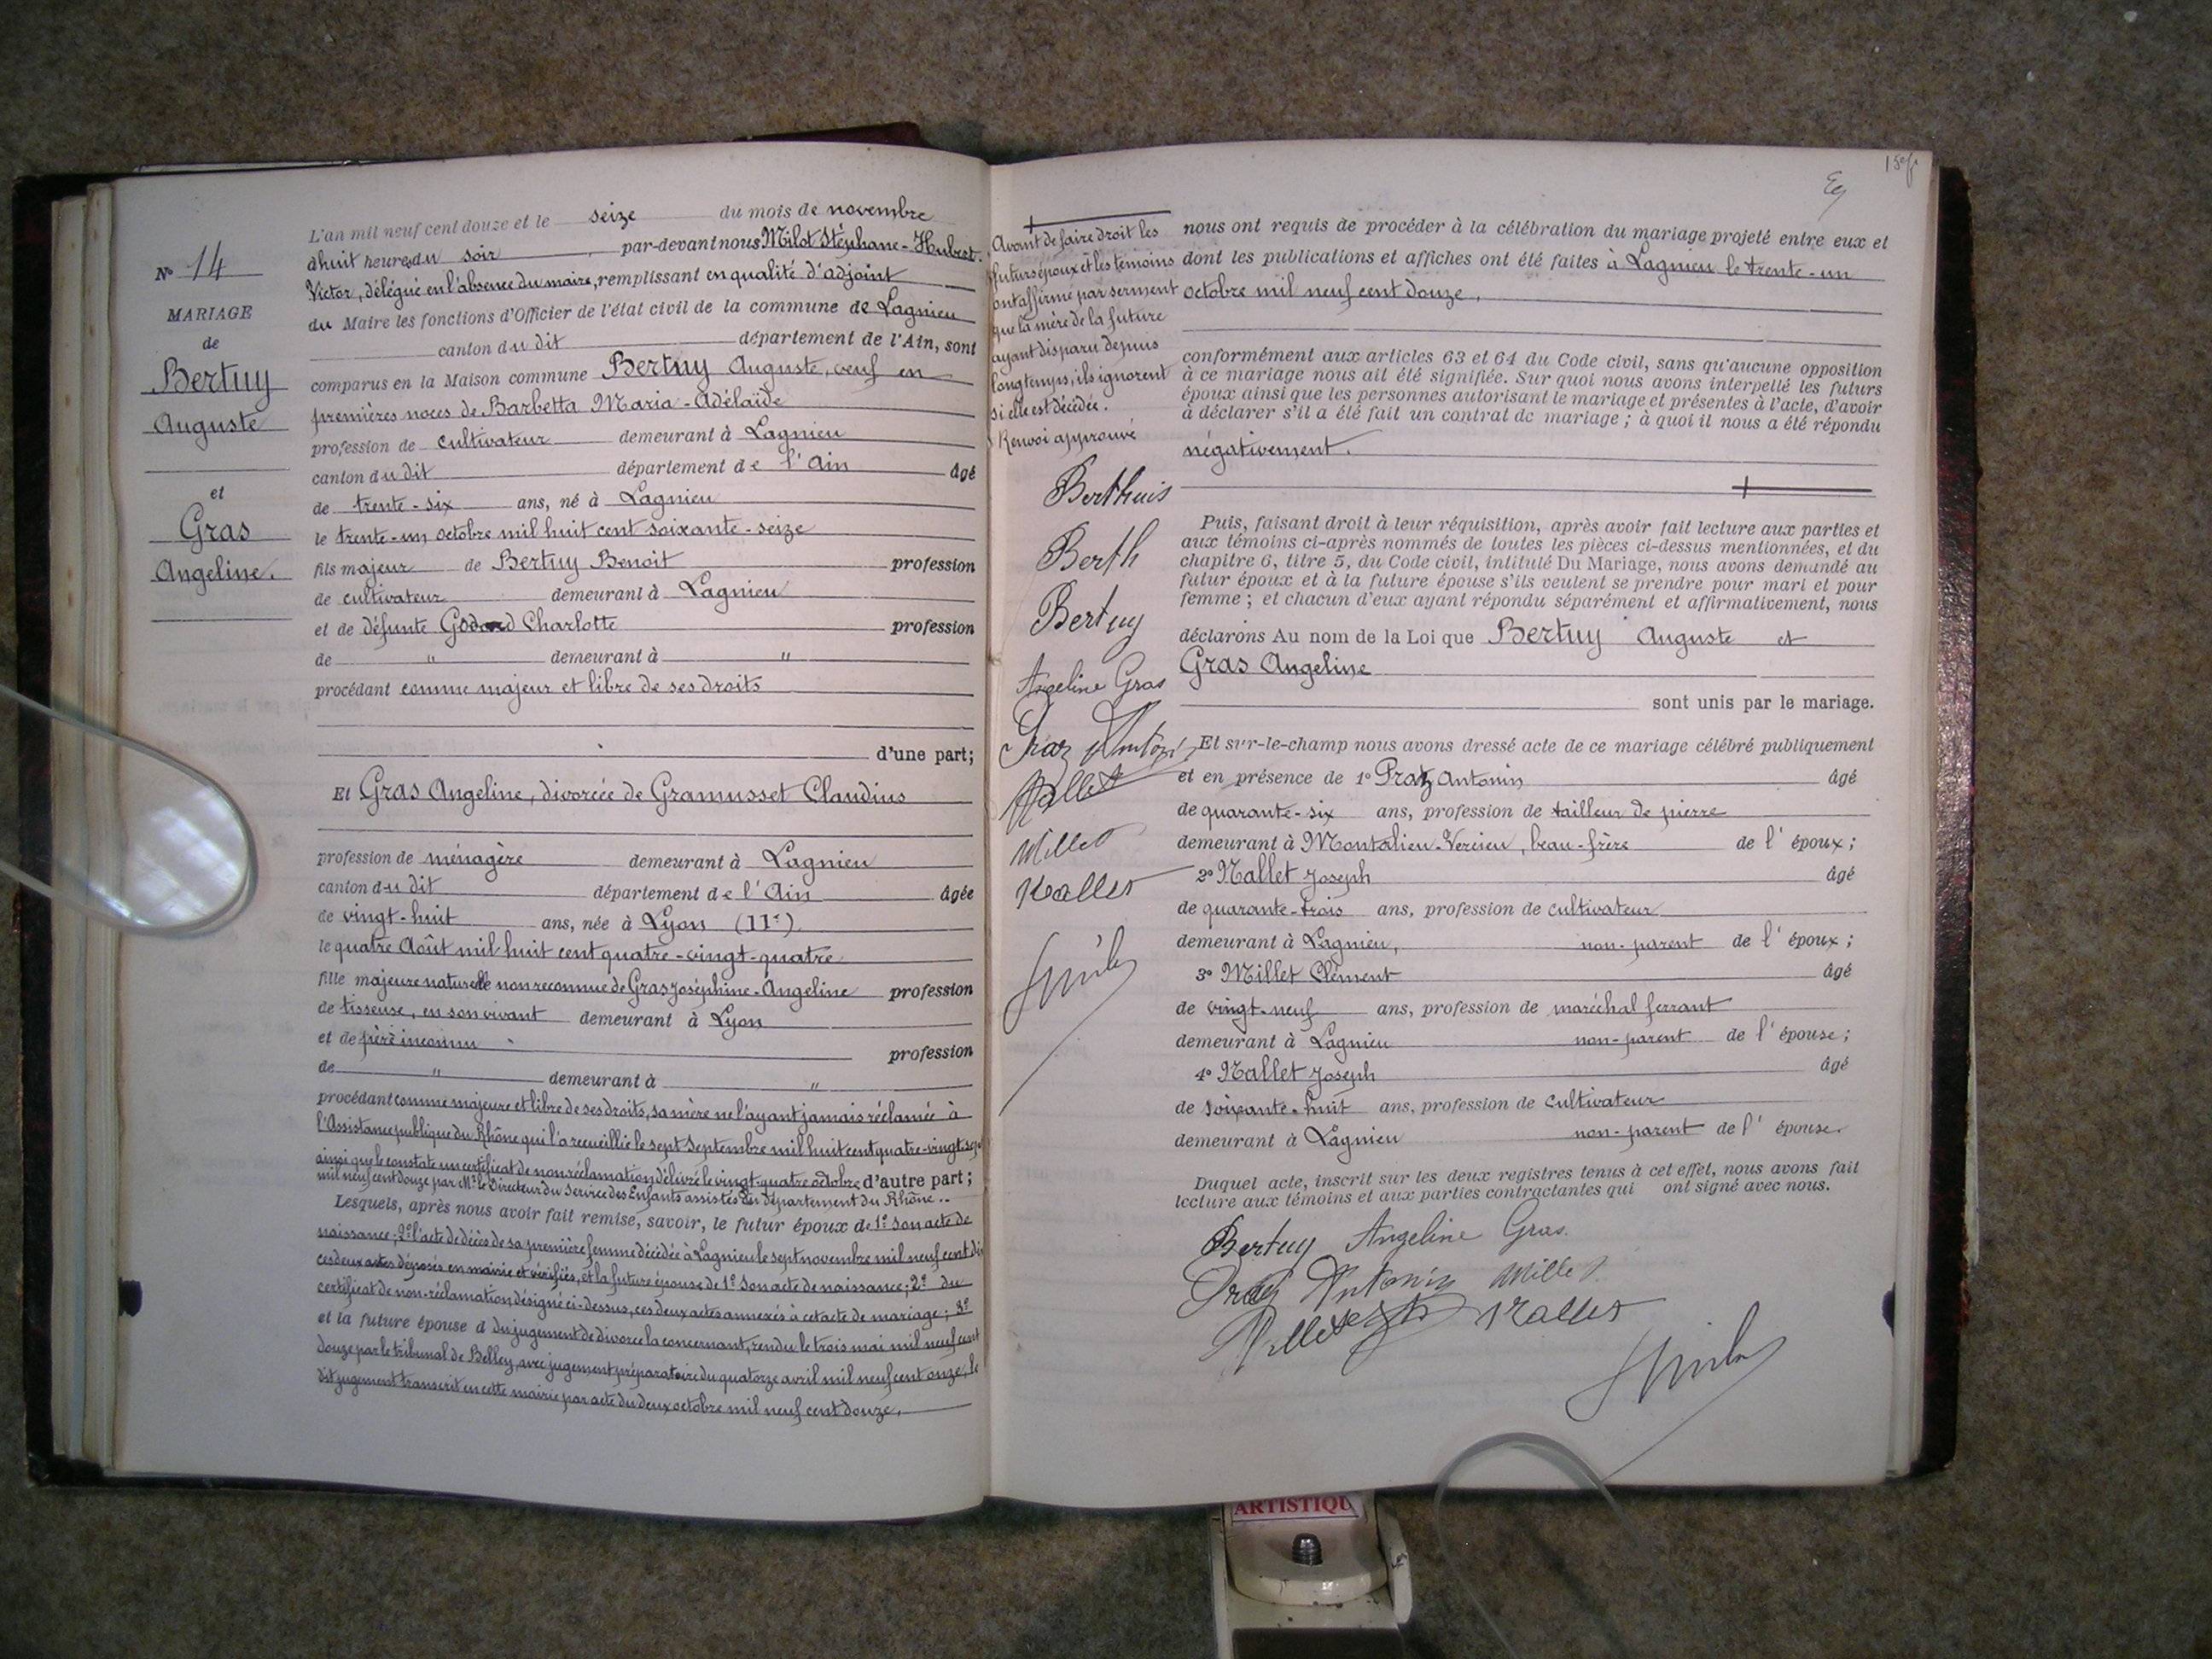 N° 14
MARIAGE
de
Bertuy
Auguste
et
Gras
Angeline.
L'an mil neuf cent douze et le seize du mois de novembre
à huit heures du soir, par-devant nous Milot Stéphane-Hubert.
Victor, délégué en l'absence du maire, remplissant en qualité d'adjoint
du Maire les fonctions d'Officier de l'état civil de la commune de Lagnieu
canton du dit département de l'Ain, sont
comparus en la Maison commune Bertuy Auguste, veuf en
premières noces de Barbetta Maria-Adélaïde
profession de cultivateur demeurant à Lagnieu
canton du dit département de l'Ain âgé
de trente-six ans, né à Lagnieu
le trente-un octobre mil huit cent soixante-seize
fils majeur de Bertuy Benoit profession
de cultivateur demeurant à Lagnieu
et de défunte Godard Charlotte profession
de " demeurant à "
procédant comme majeur et libre de ses droits
d'une part;
Et Gras Angeline, divorcée de Gramusset Claudius
profession de ménagère demeurant à Lagnieu
canton du dit département de l'Ain âgée
de vingt-huit ans, née à Lyon (IIe)
le quatre Août mil huit cent quatre-vingt-quatre
fille majeure naturelle non reconnue de Gras Joséphine-Angeline profession
de tisseuse, en son vivant demeurant à Lyon
et de père inconnu profession
de " demeurant à "
procédant comme majeure et libre de ses droits, sa mère ne l'ayant jamais réclamée à
l'Assistance publique du Rhône qui l'a recueillie le sept Septembre mil huit cent quatre-vingt-sept
ainsi que le constate un certificat de non réclamation délivré le vingt-quatre octobre d'autre part;
mil neuf cent douze par Mr le Directeur du Service des Enfants assistés du département du Rhône..
Lesquels, après nous avoir fait remise, savoir, le futur époux de 1° son acte de
naissance; 2° l'acte de décès de sa première femme décédée à Lagnieu le sept novembre mil neuf cent dix
ces deux actes déposés en mairie et vérifiés, et la future épouse de 1° son acte de naissance; 2° du
certificat de non-réclamation désigné ci-dessus, ces deux actes annexés à cet acte de mariage; 3°
et la future épouse d du jugement de divorce la concernant, rendu le trois mai mil neuf cent
douze par le tribunal de Belley, avec jugement préparatoire du quatorze avril mil neuf cent onze, le
dit jugement transcrit en cette mairie par acte du deux octobre mil neuf cent douze.
Avant de faire droit les
futurs époux et les témoins
ont affirmé par serment
que la mère de la future
ayant disparu depuis
longtemps, ils ignorent
si elle est décédée.
Renvoi approuvé
Berthuis
Berth
Bertuy
Angeline Gras
Praz Antonin
Nallet
Millet
Nallet
nous ont requis de procéder à la célébration du mariage projeté entre eux et
dont les publications et affiches ont été faites à Lagnieu le trente-un
octobre mil neuf cent douze.
conformément aux articles 63 et 64 du Code civil, sans qu'aucune opposition
à ce mariage nous ait été signifiée. Sur quoi nous avons interpellé les futurs
époux ainsi que les personnes autorisant le mariage et présentes à l'acte, d'avoir
à déclarer s'il a été fait un contrat de mariage; à quoi il nous a été répondu
négativement.
Puis, faisant droit à leur réquisition, après avoir fait lecture aux parties et
aux témoins ci-après nommés de toutes les pièces ci-dessus mentionnées, et du
chapitre 6, titre 5, du Code civil, intitulé Du Mariage, nous avons demandé au
futur époux et à la future épouse s'ils veulent se prendre pour mari et pour
femme; et chacun d'eux ayant répondu séparément et affirmativement, nous
déclarons Au nom de la Loi que Bertuy Auguste et
Gras Angeline
sont unis par le mariage.
Et sur-le-champ nous avons dressé acte de ce mariage célébré publiquement
et en présence de 1° Pratz Antonin âgé
de quarante-six ans, profession de tailleur de pierre
demeurant à Montalieu-Vercieu, beau-frère de l'époux;
2° Nallet Joseph âgé
de quarante-trois ans, profession de cultivateur
demeurant à Lagnieu, non-parent de l'époux;
3° Millet Clément âgé
de vingt-neuf ans, profession de maréchal ferrant
demeurant à Lagnieu non-parent de l'épouse;
4° Nallet Joseph âgé
de soixante-huit ans, profession de cultivateur
demeurant à Lagnieu non-parent de l'épouse.
Duquel acte, inscrit sur les deux registres tenus à cet effet, nous avons fait
lecture aux témoins et aux parties contractantes qui ont signé avec nous.
Bertuy Angeline Gras.
Antonin Millet
Nallet
ARTISTIQU